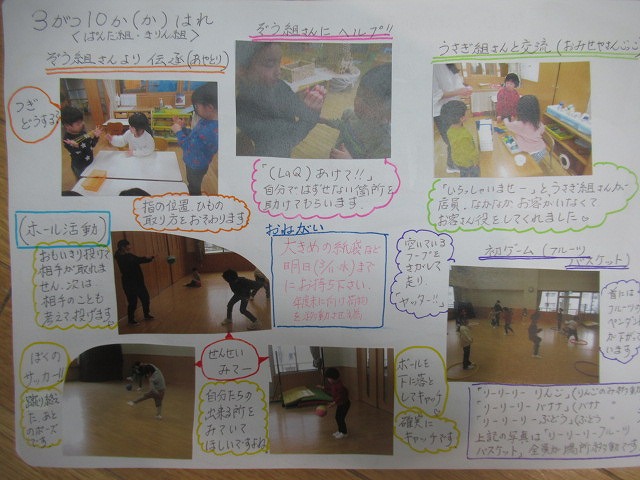 3がつ10か(か)はれ
<ぱんだ組・きりん組>
ぞう組さんより伝承(あやとり)
つぎ
どうする?
指の位置、ひもの
取り方をおそわります
ぞう組さんにヘルプ!!
「(LaQ)あけて!!」
自分ではずせない箇所を
助けてもらいます。
うさぎ組さんと交流(おみせやさん
「いらっしゃいませー」と、うさぎ組さんが
店員、なかなかお客がいなくて
お客さん役をしてくれました♡
(ホール活動)
おもいきり投げて
相手が取れま
せん。次は
相手のことも
考えて投げます。
おねがい
大きめの紙袋など
明日(3/11水)まで
にお持ち下さい。
年度末に向け荷物
を移動させる為
空いている
フープを
さがして
走り、
ヤッター!!
初ゲーム(フルーツ
バスケット)
首には
フルーツの
ペンダント
カードがつ
います
ぼくの
サッカー!!
蹴り終え
た、あと
のポーズ
です
せんせい
みてー
自分たちの
出来る所を
みていて
ほしいですよね
ボールを
下に落と
してキャッチ
確実に
キャッチです
「リーリーリー りんご」(りんごのみお動
リーリーリー バナナ」(バナナ 〃
リーリーリー ぶどう」(ぶどう 〃
上記の写真は「リーリーリーフルーツ
バスケット」全員が場所お動です